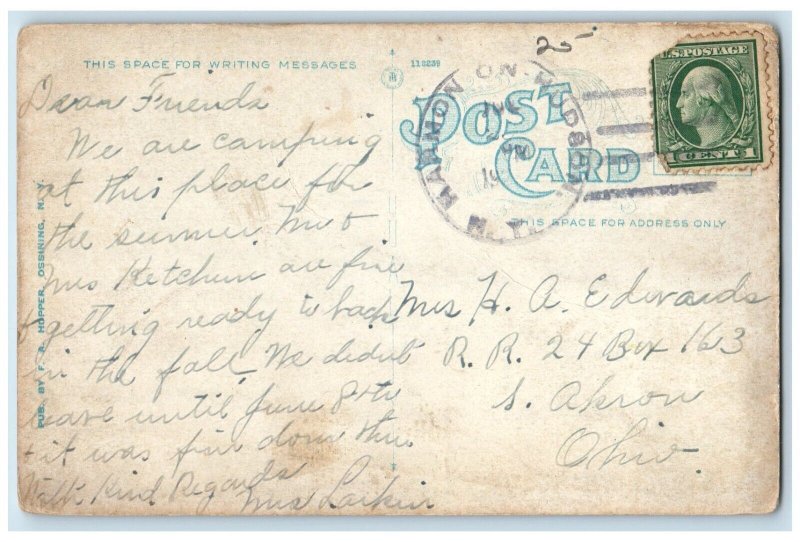 THIS SPACE FOR WRITING MESSAGES
118239
POST CARD
THIS SPACE FOR ADDRESS ONLY
PUB. BY F. A. HOPPER, OSSINING, N. Y.
HARMON ON HUDSON
U.S. POSTAGE
1 CENT 1
25
Dear Friends
We are camping
at this place for
the summer. Mr &
Mrs Ketchum are fine
& getting ready to
in the fall. We didnt
leave until June 8th
+ it was fin down thu
With Kind Regards
Mrs Larkin
Mrs H. A. Edwards
R. R. 24 Box 163
S. Akron
Ohio.